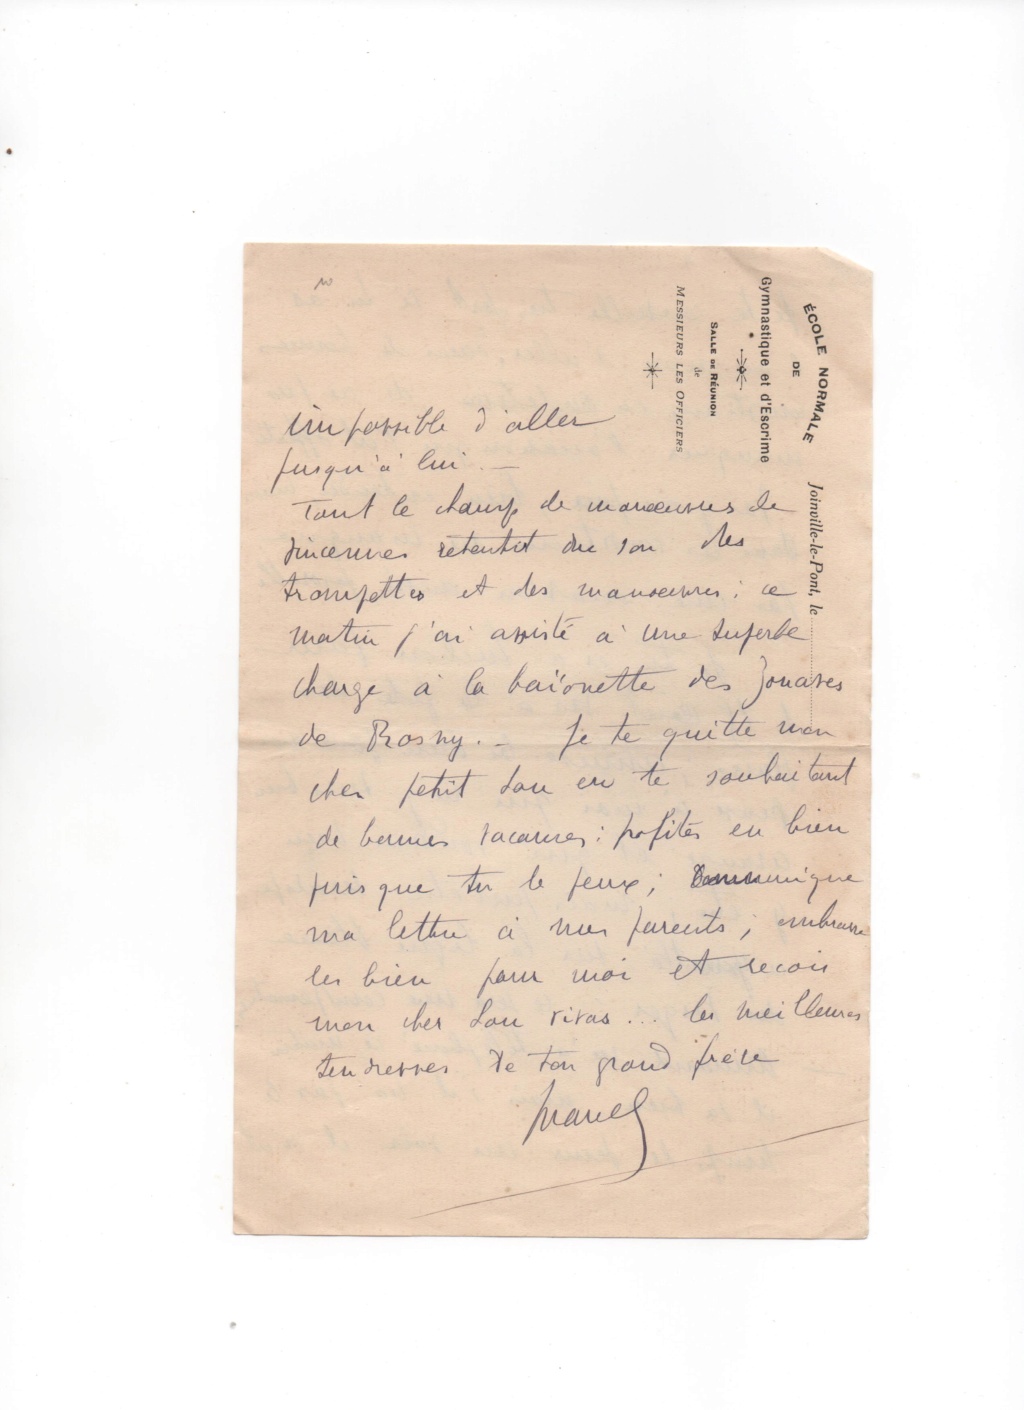 ÉCOLE NORMALE
DE
Gymnastique et d'Escrime
SALLE DE RÉUNION
de
MESSIEURS LES OFFICIERS
Joinville-le-Pont, le
impossible d'aller
jusqu'à lui. —
Tout le champ de manœuvres de
Vincennes retentit du son des
trompettes et des manœuvres ; ce
matin j'ai assisté à une superbe
charge à la baïonette des Zouaves
de Rosny. — Je te quitte mon
cher petit Lou en te souhaitant
de bonnes vacances : profites en bien
puis que tu le peux ; communique
ma lettre à mes parents ; embrasse
les bien pour moi et reçois
mon cher Lou ... les meilleures
tendresses de ton grand frère
Marcel